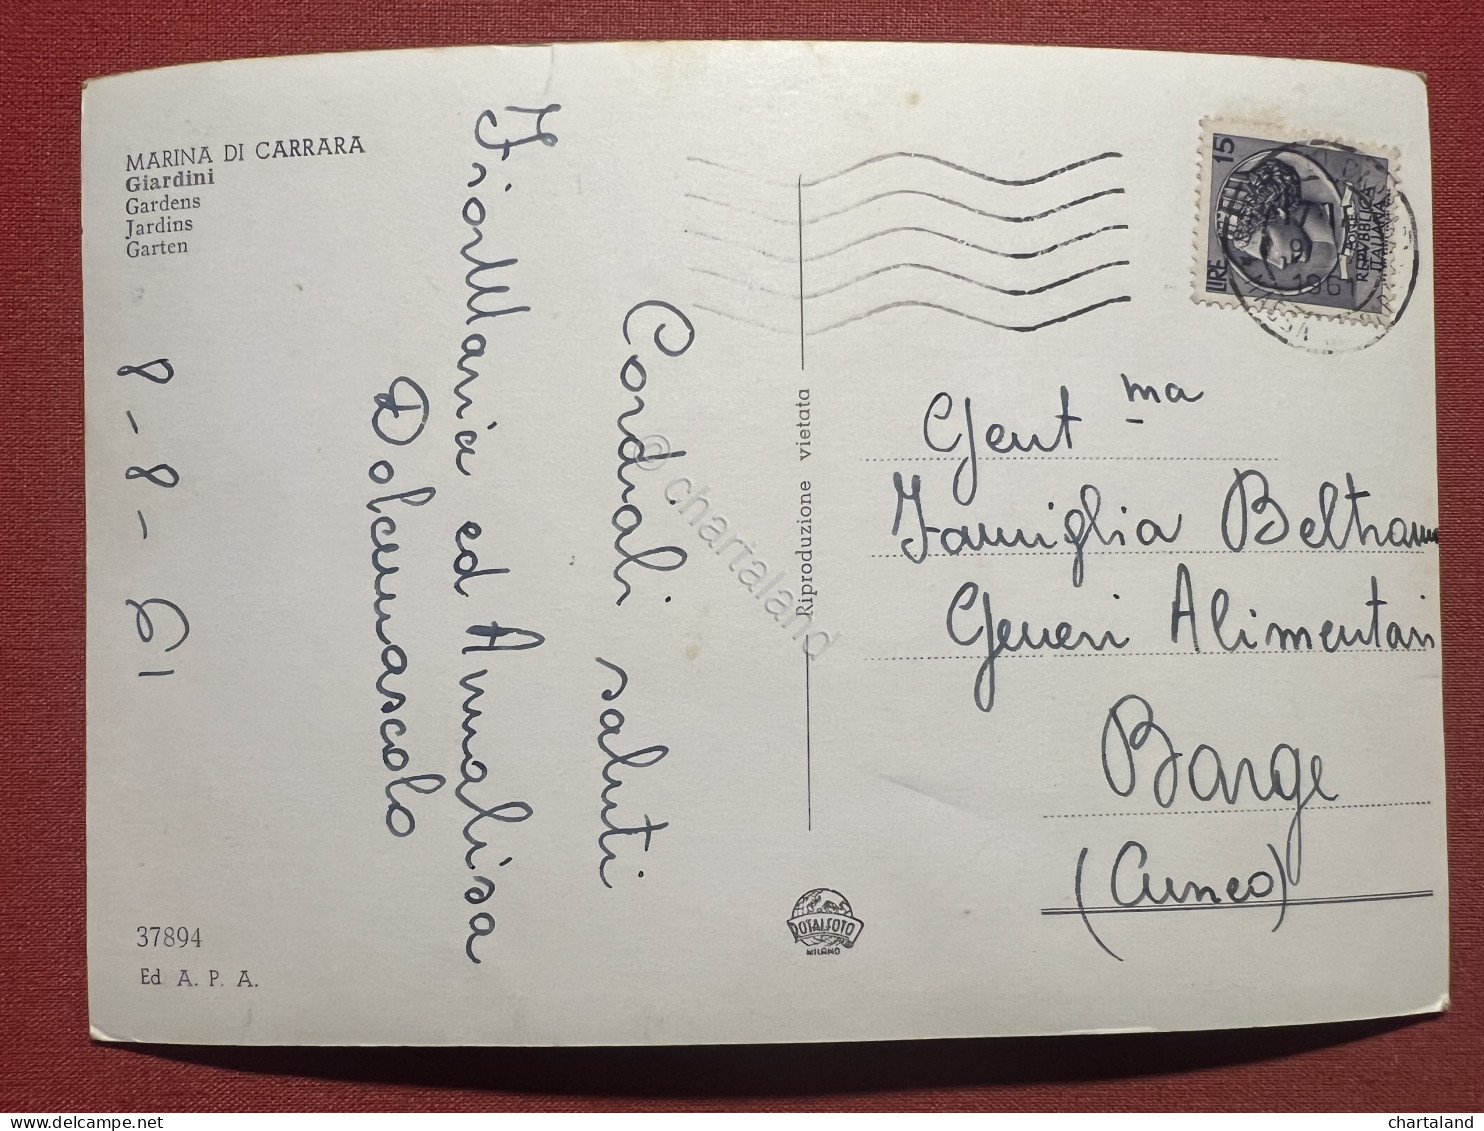 MARINA DI CARRARA
Giardini
Gardens
Jardins
Garten
Cordiali saluti
FiorMaria ed Annalisa
Dolcemascolo
8-8-61
37894
Ed A. P. A.
Riproduzione vietata
ROTALFOTO
MILANO
LIRE 15
POSTE
REPVBBLICA
ITALIANA
9
1961
Gent ma
Famiglia Beltramo
Generi Alimentari
Barge
(Cuneo)
© chartaland
chartaland